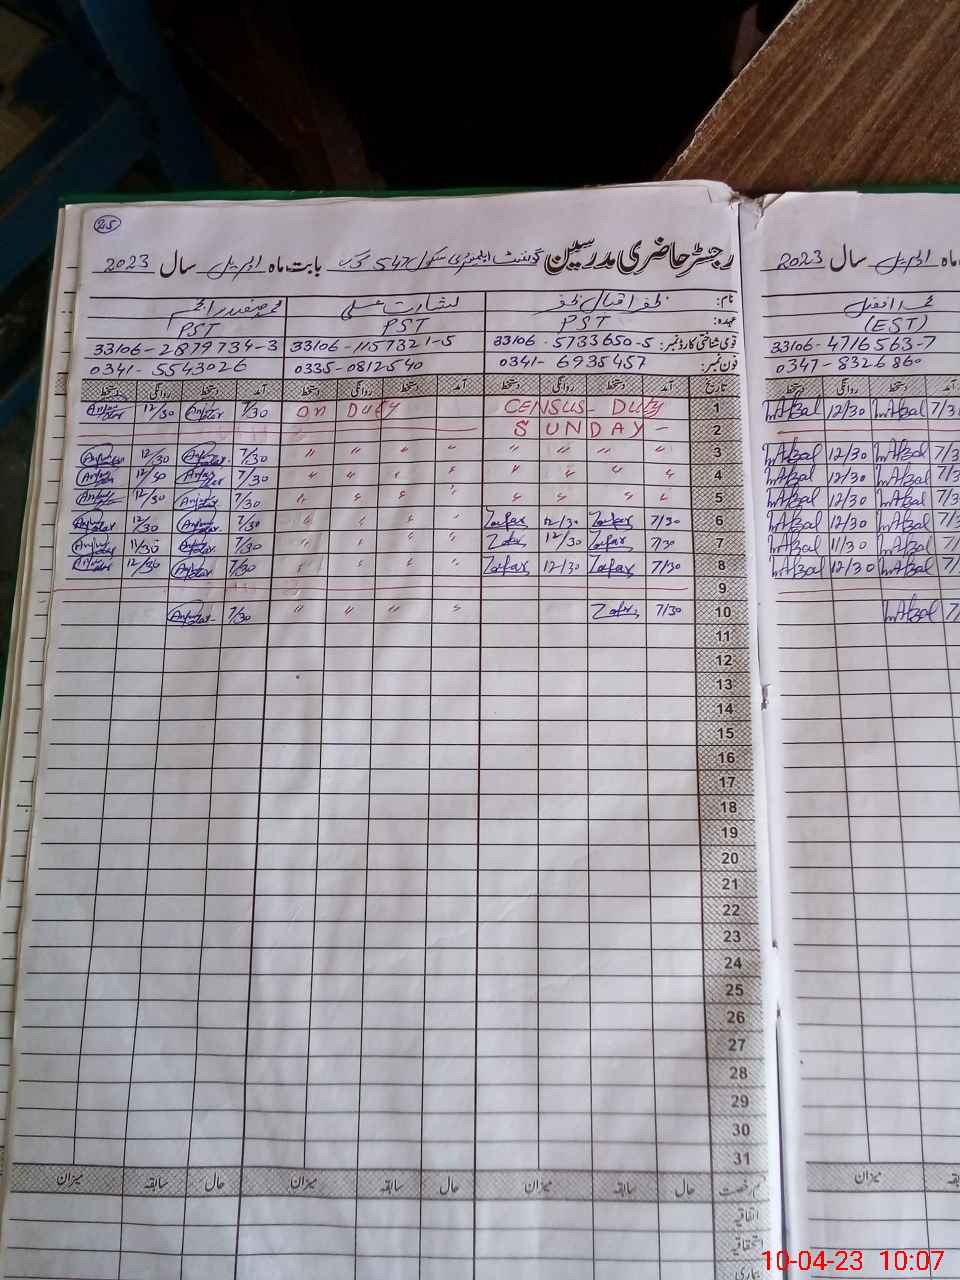 25
رجسٹر حاضری مدرسین گورنمنٹ ایلیمنٹری سکول 547 گ ب بابت ماہ اپریل سال 2023
نام: ظفر اقبال ظفر بشارت علی محمد صفدر انجم
عہدہ: PST PST PST
قومی شناختی کارڈ نمبر: 33106-5733650-5 33106-1157321-5 33106-2879734-3
فون نمبر: 0341-6935457 0335-0812540 0341-5543026
تاریخ آمد دستخط روانگی دستخط آمد دستخط روانگی دستخط آمد دستخط روانگی دستخط
1 CENSUS - Duty on Duty 7/30 12/30
2 SUNDAY -
3 " " " " " " " " 7/30 12/30
4 " " " " " " " " 7/30 12/30
5 " " " " " " " " 7/30 12/30
6 7/30 Zafar 12/30 Zafar " " " " 7/30 12/30
7 7/30 Zafar 12/30 Zafar " " " " 7/30 11/30
8 7/30 Zafar 12/30 Zafar " " " " 7/30 12/30
9
10 7/30 Zafar " " " " 7/30
11
12
13
14
15
16
17
18
19
20
21
22
23
24
25
26
27
28
29
30
31
قسم رخصت حال سابقہ میزان حال سابقہ میزان حال سابقہ میزان
اتفاقیہ
استحقاقیہ
بیماری
ماہ اپریل سال 2023
محمد افضل
(EST)
33106-4716563-7
0347-8326860
آمد دستخط روانگی دستخط
7/3 M Afzal 12/30 M Afzal
7/3 M Afzal 12/30 M Afzal
7/3 M Afzal 12/30 M Afzal
7/3 M Afzal 12/30 M Afzal
7/3 M Afzal 12/30 M Afzal
7/3 M Afzal 11/30 M Afzal
7/3 M Afzal 12/30 M Afzal
7/ M Afzal
سابقہ میزان
10-04-23 10:07